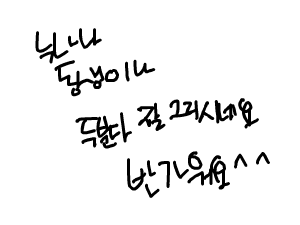 눗나나
동생이나
두분다 잘 그리시네요
반가워요^^